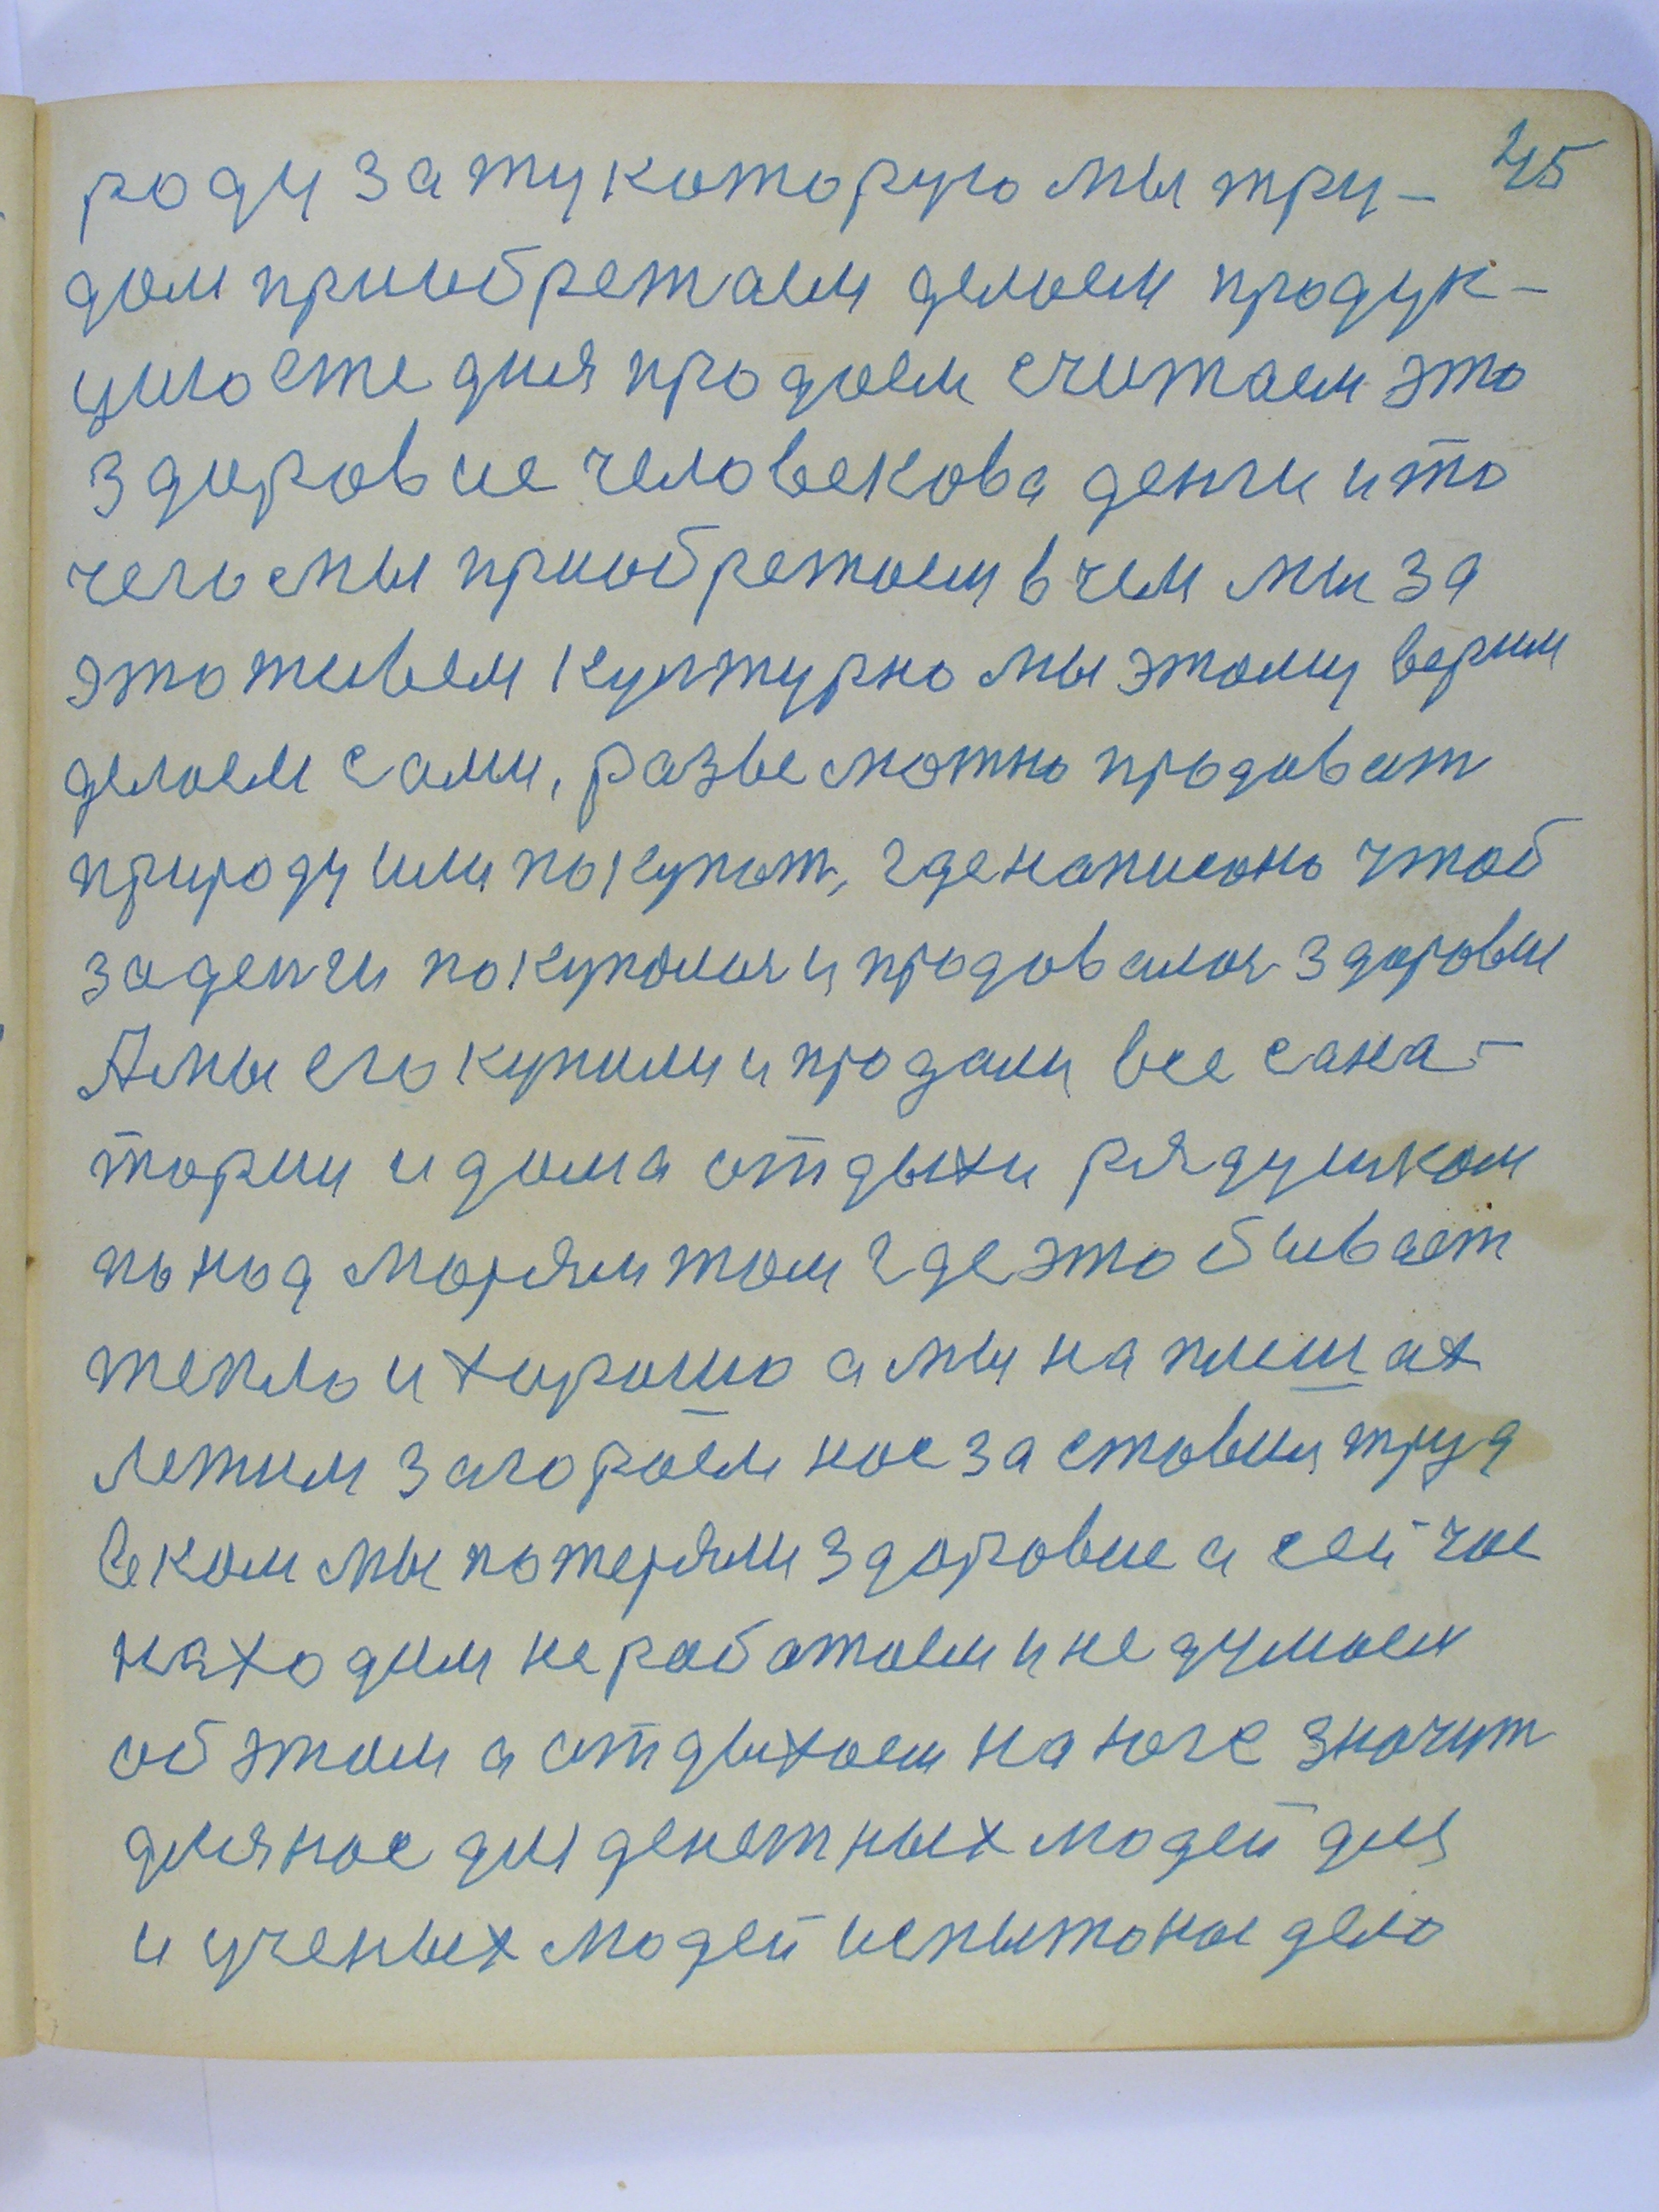 45
роду за ту которую мы тру-
дом приобретаем делаем продук-
цию сте дня продаем считаем это
здоровие человекова денги и то
чего мы приобретаем в чем мы за
это живем културно мы этому верим
делаем сами, разве можно продават
природу или покупат, где написано чтоб
за денги покупалося и продавалося здоровие
А мы его купили и продали все сана-
тории и дома отдыхи рядушком
понад морям там где это бывает
тепло и хорошо а мы на пляшах
летим загораем нас заставил труд
в ком мы потеряли здоровие а сейчас
находим не работаем и не думаем
об этом а отдыхаем на юге значит
для нас для денежных людей для
и ученых людей испытаное дело